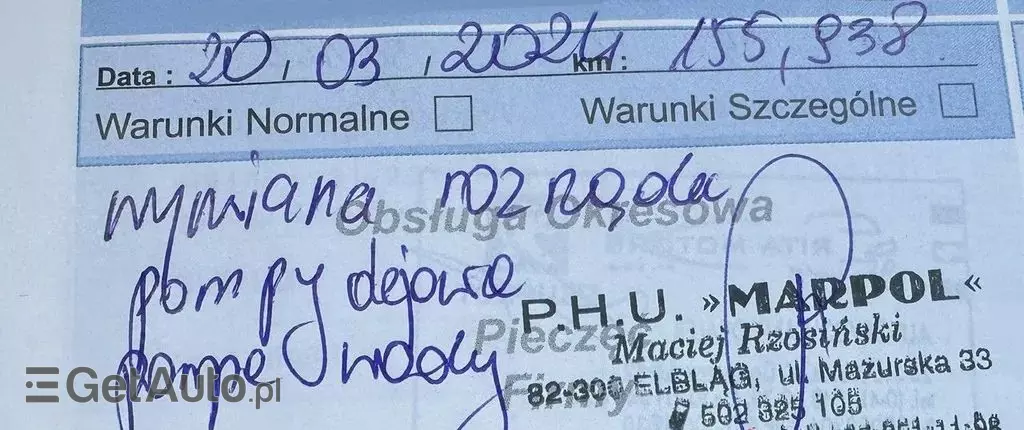 Data : 20, 03, 2024 km : 155,938
Warunki Normalne Warunki Szczególne
wymiana rozrządu
Obsługa Okresowa
pompy olejowe
P.H.U. »MARPOL«
Pieczęć
Maciej Rzosiński
pompe wody
82-300 ELBLĄG, ul. Mazurska 33
Firmy
502 325 105
GetAuto.pl